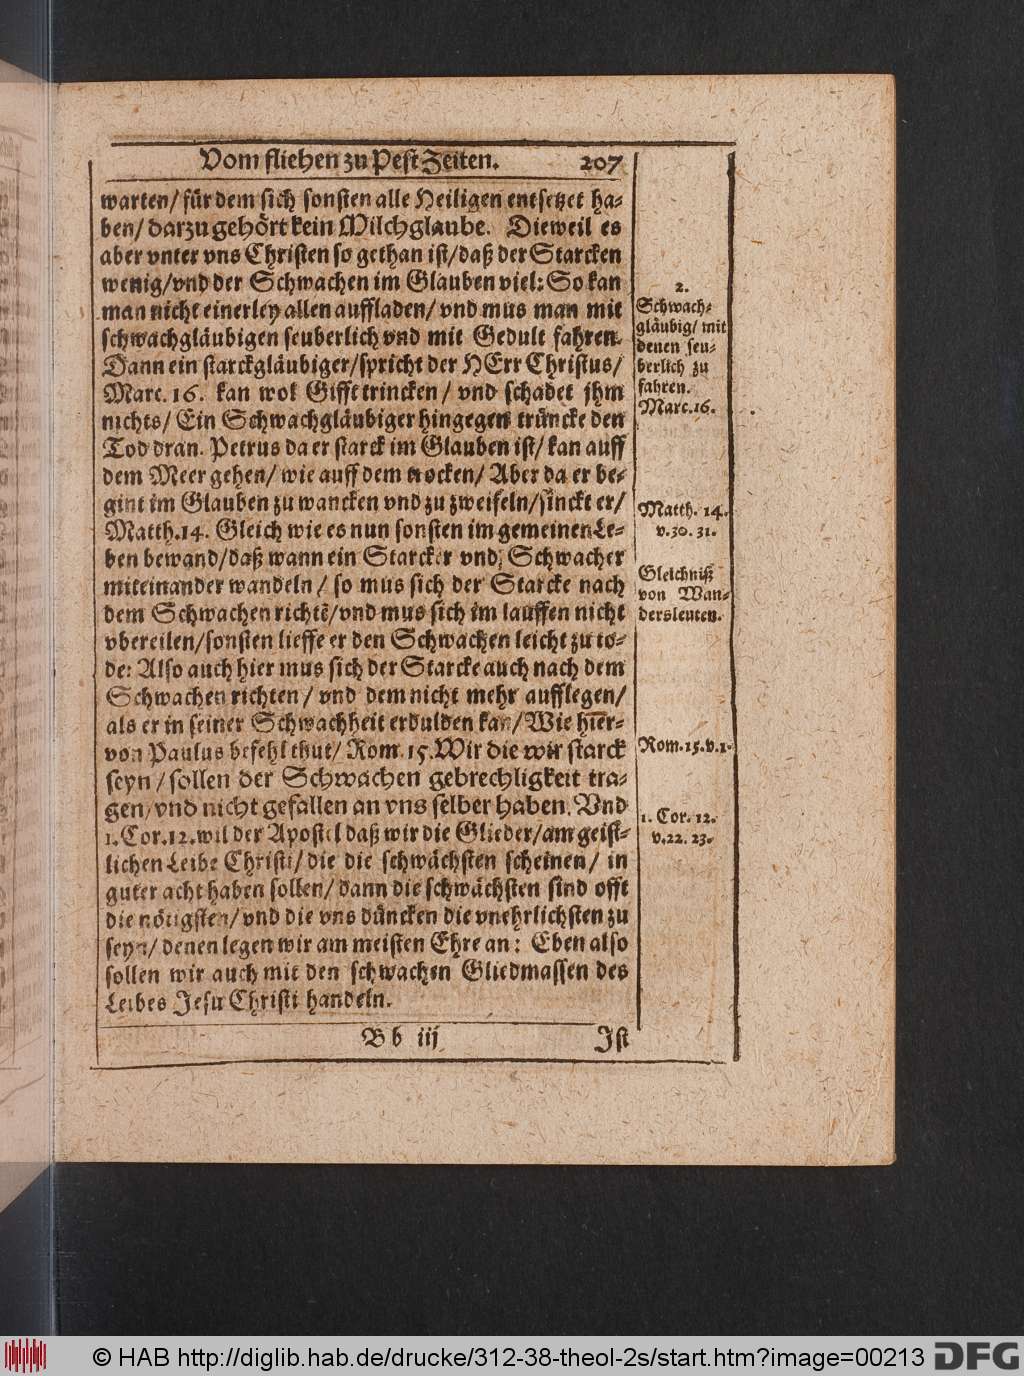 Vom fliehen zu Pest Zeiten. 207
warten/ für dem sich sonsten alle Heiligen entsetzet ha-
ben/ darzu gehört kein Milchglaube. Dieweil es
aber vnter vns Christen so gethan ist/ daß der Starcken
wenig/ vnd der Schwachen im Glauben viel: So kan
man nicht einerley allen auffladen/ vnd mus man mit
schwachgläubigen seuberlich vnd mit Gedult fahren.
Dann ein starckgläubiger/ spricht der HErr Christus/
Marc. 16. kan wol Gifft trincken/ vnd schadet jhm
nichts/ Ein Schwachgläubiger hingegen trüncke den
Tod dran. Petrus da er starck im Glauben ist/ kan auff
dem Meer gehen/ wie auff dem trocken/ Aber da er be-
gint im Glauben zu wancken vnd zu zweifeln/ sinckt er/
Matth. 14. Gleich wie es nun sonsten im gemeinen Le-
ben bewand/ daß wann ein Starcker vnd Schwacher
miteinander wandeln/ so mus sich der Starcke nach
dem Schwachen richtē/ vnd mus sich im lauffen nicht
vbereilen/ sonsten lieffe er den Schwachen leicht zu to-
de: Also auch hier mus sich der Starcke auch nach dem
Schwachen richten/ vnd dem nicht mehr aufflegen/
als er in seiner Schwachheit erdulden kan/ Wie hier-
von Paulus befehl thut/ Rom. 15. Wir die wir starck
seyn/ sollen der Schwachen gebrechligkeit tra-
gen/ vnd nicht gefallen an vns selber haben. Vnd
1. Cor. 12. wil der Apostel daß wir die Glieder/ am geist-
lichen Leibe Christi/ die die schwächsten scheinen/ in
guter acht haben sollen/ dann die schwächsten sind offt
die nötigsten/ vnd die vns düncken die vnehrlichsten zu
seyn/ denen legen wir am meisten Ehre an: Eben also
sollen wir auch mit den schwachen Gliedmassen des
Leibes Jesu Christi handeln.
B b iij Ist
2.
Schwach-
gläubig/ mit
denen seu-
berlich zu
fahren.
Marc. 16.
Matth. 14.
v. 30. 31.
Gleichniß
von Wan-
dersleuten.
Rom. 15. v. 1.
1. Cor. 12.
v. 22. 23.
© HAB http://diglib.hab.de/drucke/312-38-theol-2s/start.htm?image=00213 DFG